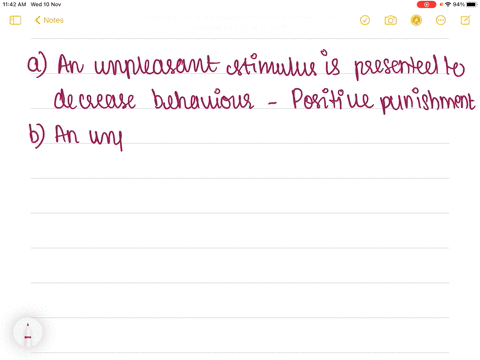 11:42 AM Wed 10 Nov
94%
Notes
a) An unpleasant stimulus is presented to
decrease behaviour - Positive punishment
b) An unp